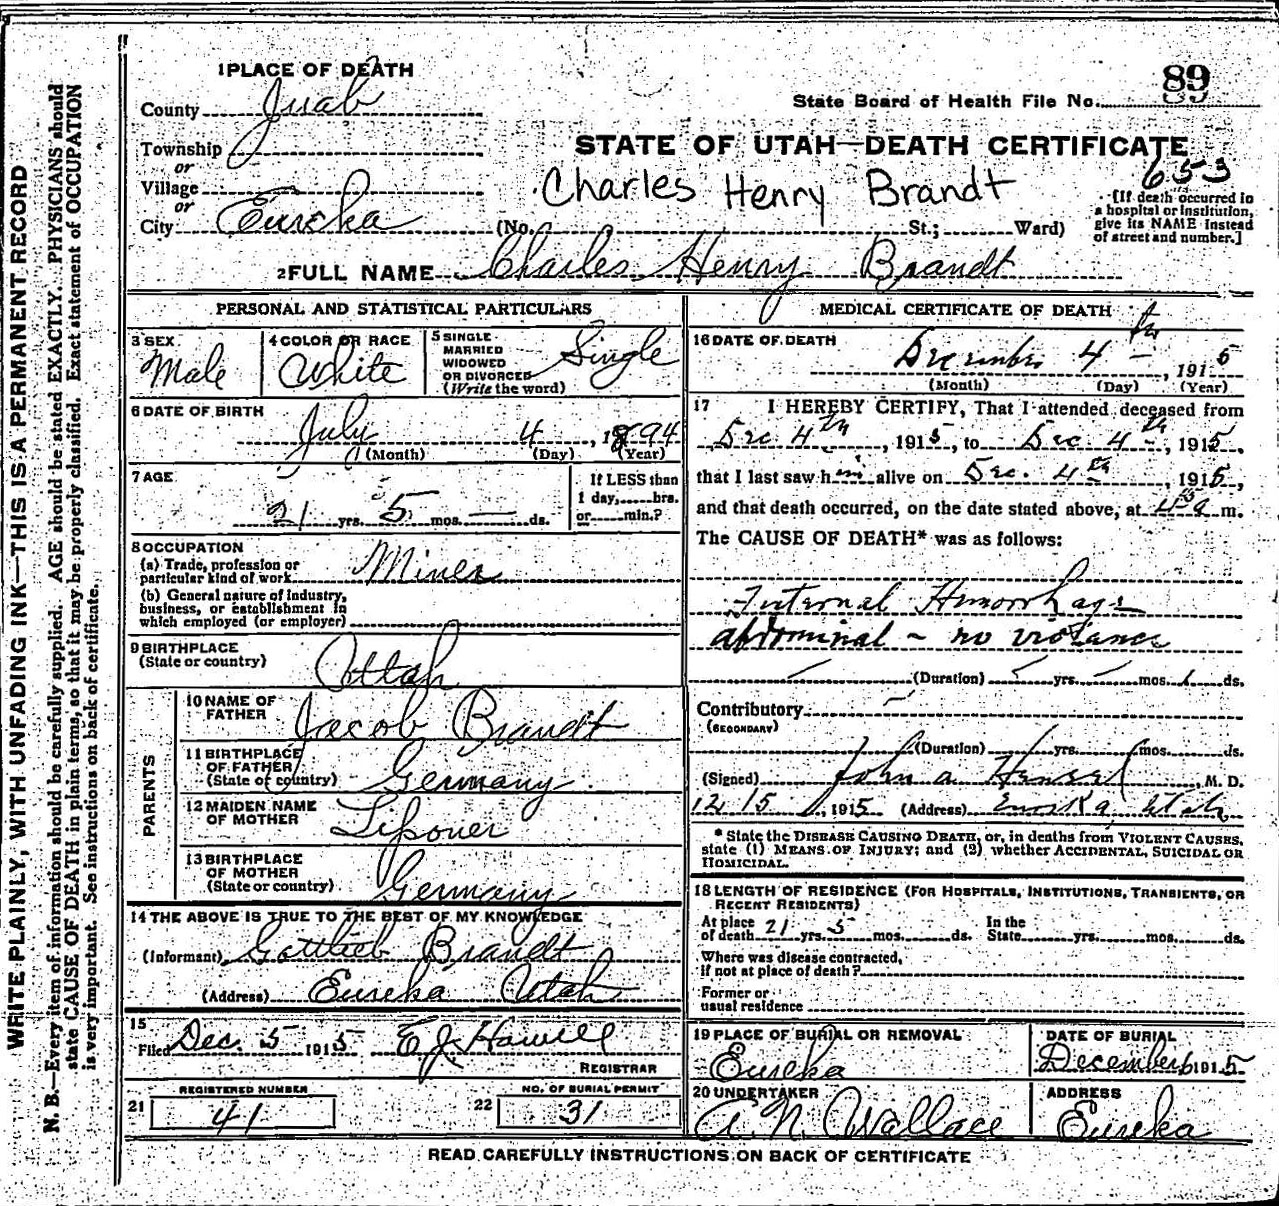 WRITE PLAINLY, WITH UNFADING INK—THIS IS A PERMANENT RECORD
N. B.—Every item of information should be carefully supplied. AGE should be stated EXACTLY. PHYSICIANS should
state CAUSE OF DEATH in plain terms, so that it may be properly classified. Exact statement of OCCUPATION
is very important. See instructions on back of certificate.
1 PLACE OF DEATH
County Juab
Township
or
Village
or
City Eureka
89
State Board of Health File No. 89
STATE OF UTAH—DEATH CERTIFICATE
653
Charles Henry Brandt
(No. St.; Ward)
[If death occurred in
a hospital or institution,
give its NAME instead
of street and number.]
2 FULL NAME Charles Henry Brandt
PERSONAL AND STATISTICAL PARTICULARS
3 SEX
Male
4 COLOR OR RACE
White
5 SINGLE
MARRIED
WIDOWED
OR DIVORCED
(Write the word)
Single
6 DATE OF BIRTH
July 4, 1894
(Month) (Day) (Year)
7 AGE
21 yrs. 5 mos. — ds.
If LESS than
1 day, hrs.
or min.?
8 OCCUPATION
(a) Trade, profession or
particular kind of work Miner
(b) General nature of industry,
business, or establishment in
which employed (or employer)
9 BIRTHPLACE
(State or country)
Utah
PARENTS
10 NAME OF
FATHER
Jacob Brandt
11 BIRTHPLACE
OF FATHER
(State or country) Germany
12 MAIDEN NAME
OF MOTHER
13 BIRTHPLACE
OF MOTHER
(State or country) Germany
14 THE ABOVE IS TRUE TO THE BEST OF MY KNOWLEDGE
(Informant) Gottlieb Brandt
(Address) Eureka Utah
15
Filed Dec. 5 1915 E J Howell
REGISTRAR
REGISTERED NUMBER
21 41
NO. OF BURIAL PERMIT
22 31
MEDICAL CERTIFICATE OF DEATH
16 DATE OF DEATH
December 4th, 1915
(Month) (Day) (Year)
17 I HEREBY CERTIFY, That I attended deceased from
Dec 4th, 1915, to Dec. 4th, 1915,
that I last saw him alive on Dec. 4th, 1915,
and that death occurred, on the date stated above, at m.
The CAUSE OF DEATH* was as follows:
Internal Hemorrhage
abdominal - no violence
(Duration) yrs. mos. 1 ds.
Contributory
(SECONDARY)
(Duration) yrs. mos. ds.
(Signed) John A Hensel M. D.
12/5, 1915 (Address) Eureka, Utah
* State the DISEASE CAUSING DEATH, or, in deaths from VIOLENT CAUSES,
state (1) MEANS OF INJURY; and (2) whether ACCIDENTAL, SUICIDAL OR
HOMICIDAL.
18 LENGTH OF RESIDENCE (FOR HOSPITALS, INSTITUTIONS, TRANSIENTS, OR
RECENT RESIDENTS)
At place
of death 21 yrs. 5 mos. ds.
In the
State yrs. mos. ds.
Where was disease contracted,
if not at place of death?
Former or
usual residence
19 PLACE OF BURIAL OR REMOVAL
Eureka
DATE OF BURIAL
December 6 1915
20 UNDERTAKER
A. N. Wallace
ADDRESS
Eureka
READ CAREFULLY INSTRUCTIONS ON BACK OF CERTIFICATE